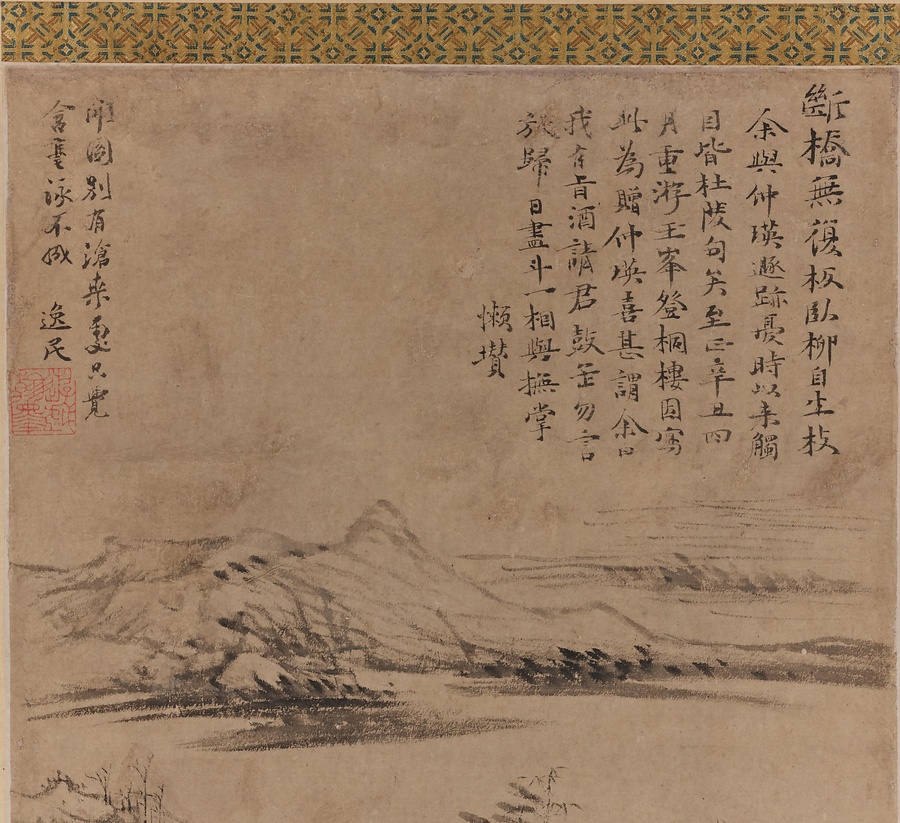 斷橋無復板臥柳自生枝
余與仲瑛遯跡憂時以来觸
目皆杜陵句矣至正辛丑四
月重游玉峯登桐樓因寫
此為贈仲瑛喜甚謂余曰
我有旨酒請君鼓缶勿言
歸日盡斗一相與撫掌
懶瓚
開圖別有滄来趣只覺
含毫詠不成 逸民